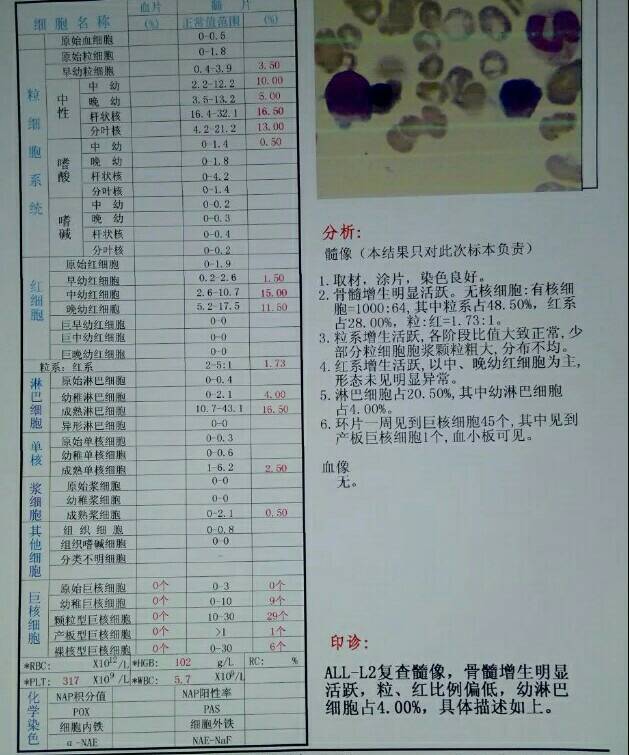 细胞名称 血片(%) 髓片 正常值范围 (%)
粒细胞系统
原始血细胞 0-0.5
原始粒细胞 0-1.8
早幼粒细胞 0.4-3.9 3.50
中性 中幼 2.2-12.2 10.00
晚幼 3.5-13.2 5.00
杆状核 16.4-32.1 16.50
分叶核 4.2-21.2 13.00
嗜酸 中幼 0-1.4 0.50
晚幼 0-1.8
杆状核 0-4.2
分叶核 0-1.4
嗜碱 中幼 0-0.2
晚幼 0-0.3
杆状核 0-0.4
分叶核 0-0.2
红细胞
原始红细胞 0-1.9
早幼红细胞 0.2-2.6 1.50
中幼红细胞 2.6-10.7 15.00
晚幼红细胞 5.2-17.5 11.50
巨早幼红细胞 0-0
巨中幼红细胞 0-0
巨晚幼红细胞 0-0
粒系: 红系 2-5:1 1.73
淋巴细胞
原始淋巴细胞 0-0.4
幼稚淋巴细胞 0-2.1 4.00
成熟淋巴细胞 10.7-43.1 16.50
异形淋巴细胞 0-0
单核
原始单核细胞 0-0.3
幼稚单核细胞 0-0.6
成熟单核细胞 1-6.2 2.50
浆细胞
原始浆细胞 0-0
幼稚浆细胞 0-0
成熟浆细胞 0-2.1 0.50
其他细胞
组织细胞 0-0.8
组织嗜碱细胞 0-0
分类不明细胞 -
巨核细胞
原始巨核细胞 0个 0-3 0个
幼稚巨核细胞 0个 0-10 9个
颗粒型巨核细胞 0个 10-30 29个
产板型巨核细胞 0个 >1 1个
裸核型巨核细胞 0个 0-30 6个
*RBC: X10¹²/L *HGB: 102 g/L RC: %
*PLT: 317 X10⁹/L *WBC: 5.7 X10⁹/L
化学染色
NAP积分值 NAP阳性率
POX PAS
细胞内铁 细胞外铁
α-NAE NAE-NaF
分析:
髓像（本结果只对此次标本负责）
1. 取材，涂片，染色良好。
2. 骨髓增生明显活跃。无核细胞:有核细
胞=1000:64,其中粒系占48.50%,红系
占28.00%, 粒:红=1.73:1。
3. 粒系增生活跃,各阶段比值大致正常,少
部分粒细胞胞浆颗粒粗大,分布不均。
4. 红系增生活跃,以中、晚幼红细胞为主,
形态未见明显异常。
5. 淋巴细胞占20.50%,其中幼淋巴细胞
占4.00%。
6. 环片一周见到巨核细胞45个,其中见到
产板巨核细胞1个,血小板可见。
血像
无。
印诊:
ALL-L2复查髓像，骨髓增生明显
活跃，粒、红比例偏低，幼淋巴
细胞占4.00%，具体描述如上。